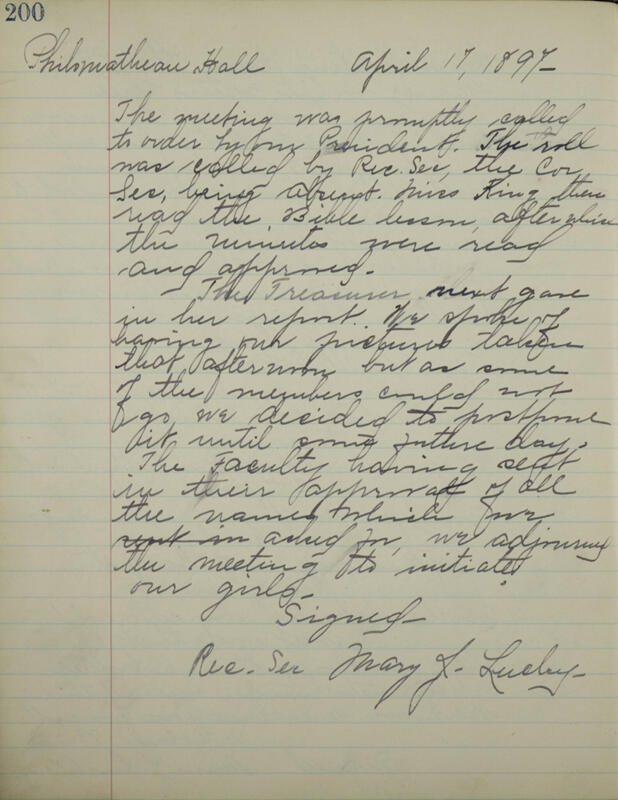 200
Philomathean Hall April 17, 1897
The meeting was promptly called
to order by our President. The roll
was called by Rec. Sec, the Cor.
Sec, being absent. Miss King then
read the Bible lesson, after which
the minutes were read
and approved.
The Treasurer next gave
in her report. We spoke of
having our pictures taken
that afternoon but as some
of the members could not
go we decided to postpone
it until some future day.
The Faculty having sent
in their approval of all
the names which we
sent in asked for, we adjourned
the meeting to initiate
our girls.
Signed
Rec. Sec Mary J.